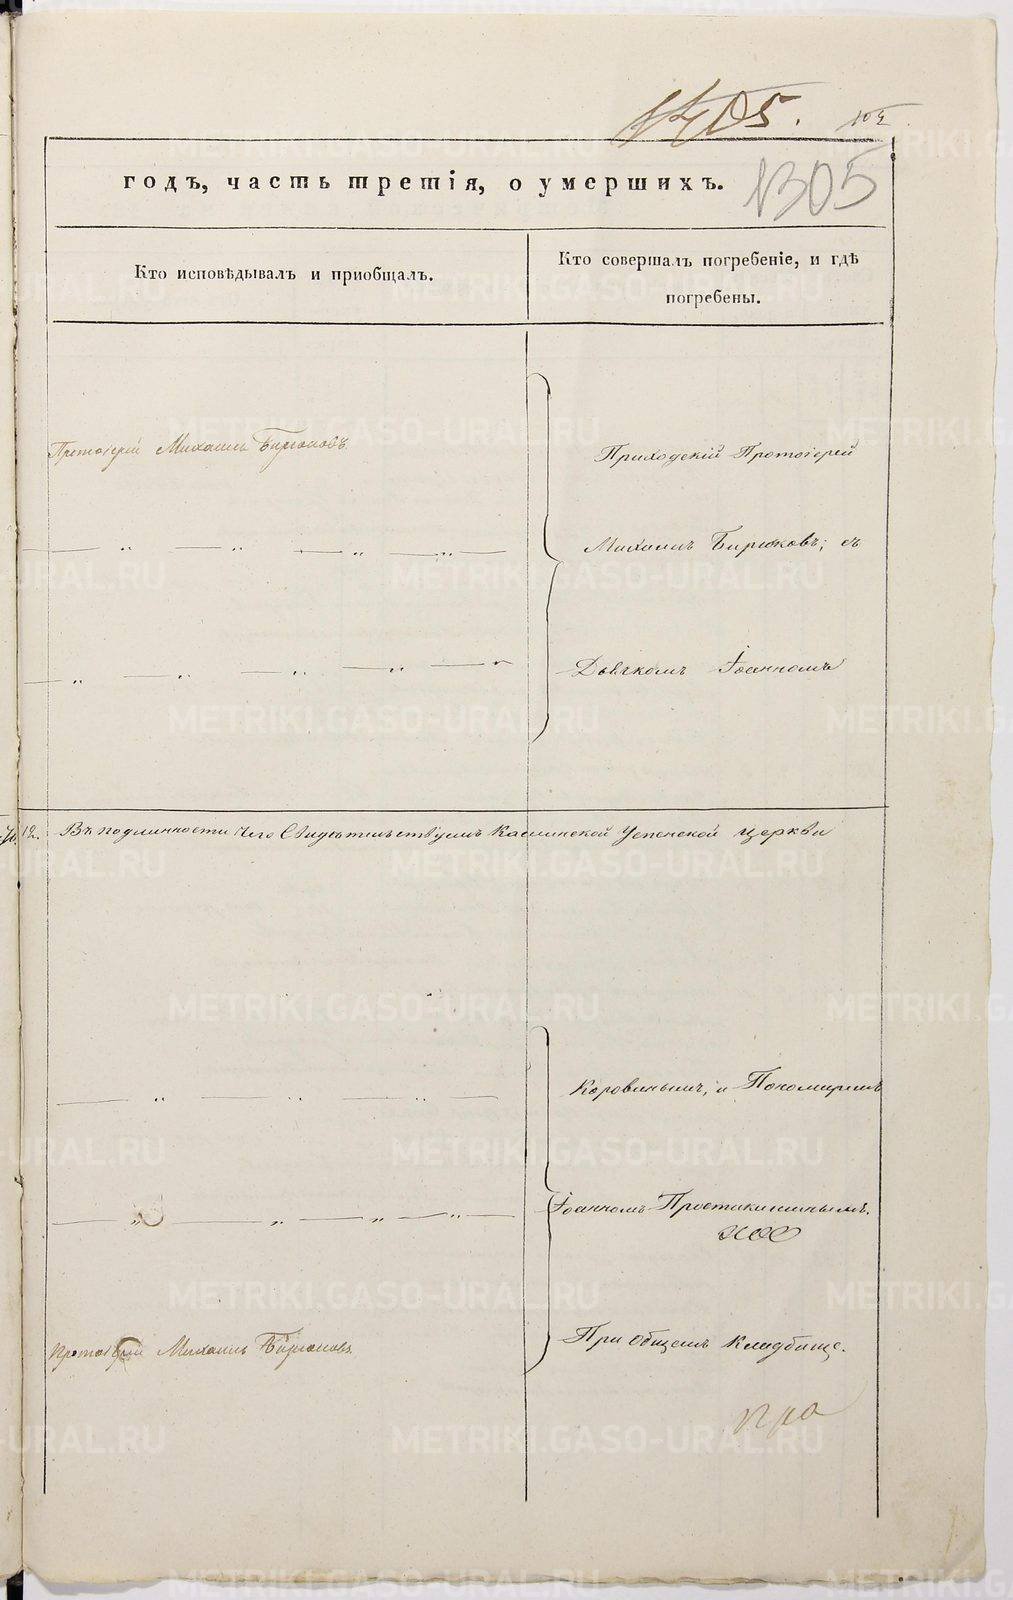 1405.
годъ, часть третія, о умершихъ.
1305
Кто исповѣдывалъ и приобщалъ.
Кто совершалъ погребеніе, и гдѣ
погребены.
Протоіерей Михаилъ Бирюковъ.
Приходскій Протоіерей
Михаилъ Бирюковъ; съ
Дьячкомъ Іоанномъ
12. Въ подлинности чего Свидѣтельствуемъ Каслинской Успенской церкви
Коровинымъ, и Пономаремъ
Іоанномъ Простакишинымъ.
При общемъ Кладбище.
Протоіерей Михаилъ Бирюковъ.
METRIKI.GASO-URAL.RU